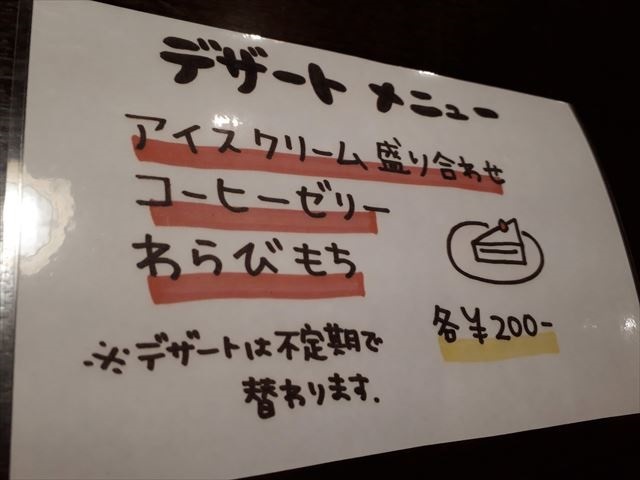 デザート メニュー
アイスクリーム盛り合わせ
コーヒーゼリー
わらびもち
各¥200-
※デザートは不定期で
替わります.